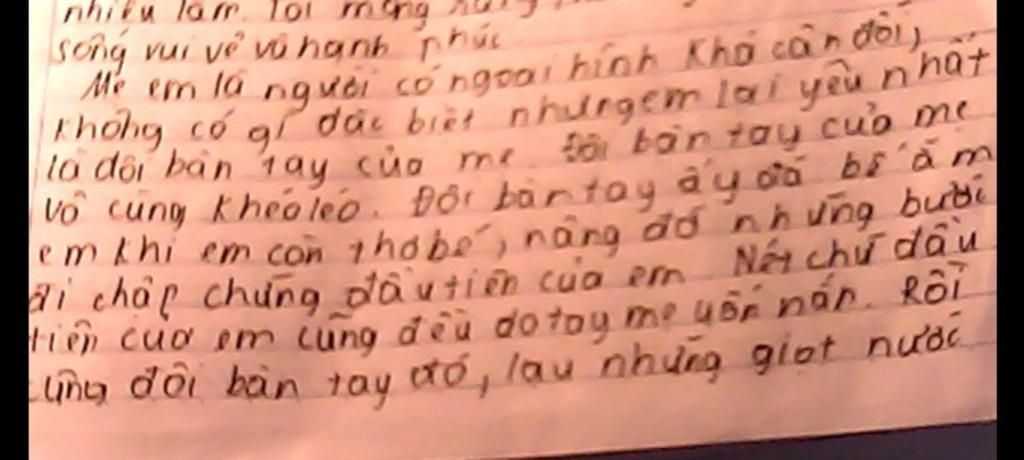 nhiều lắm. Tôi mong
sống vui vẻ và hạnh phúc
Mẹ em là người có ngoại hình khá cân đối,
không có gì đặc biệt nhưng em lại yêu nhất
là đôi bàn tay của mẹ đôi bàn tay của mẹ
vô cùng khéo léo. Đôi bàn tay ấy đã bế ẵm
em khi em còn thơ bé, nâng đỡ những bước
đi chập chững đầu tiên của em Nét chữ đầu
tiên của em cũng đều do tay mẹ uốn nắn. Rồi
cũng đôi bàn tay đó, lau những giọt nước